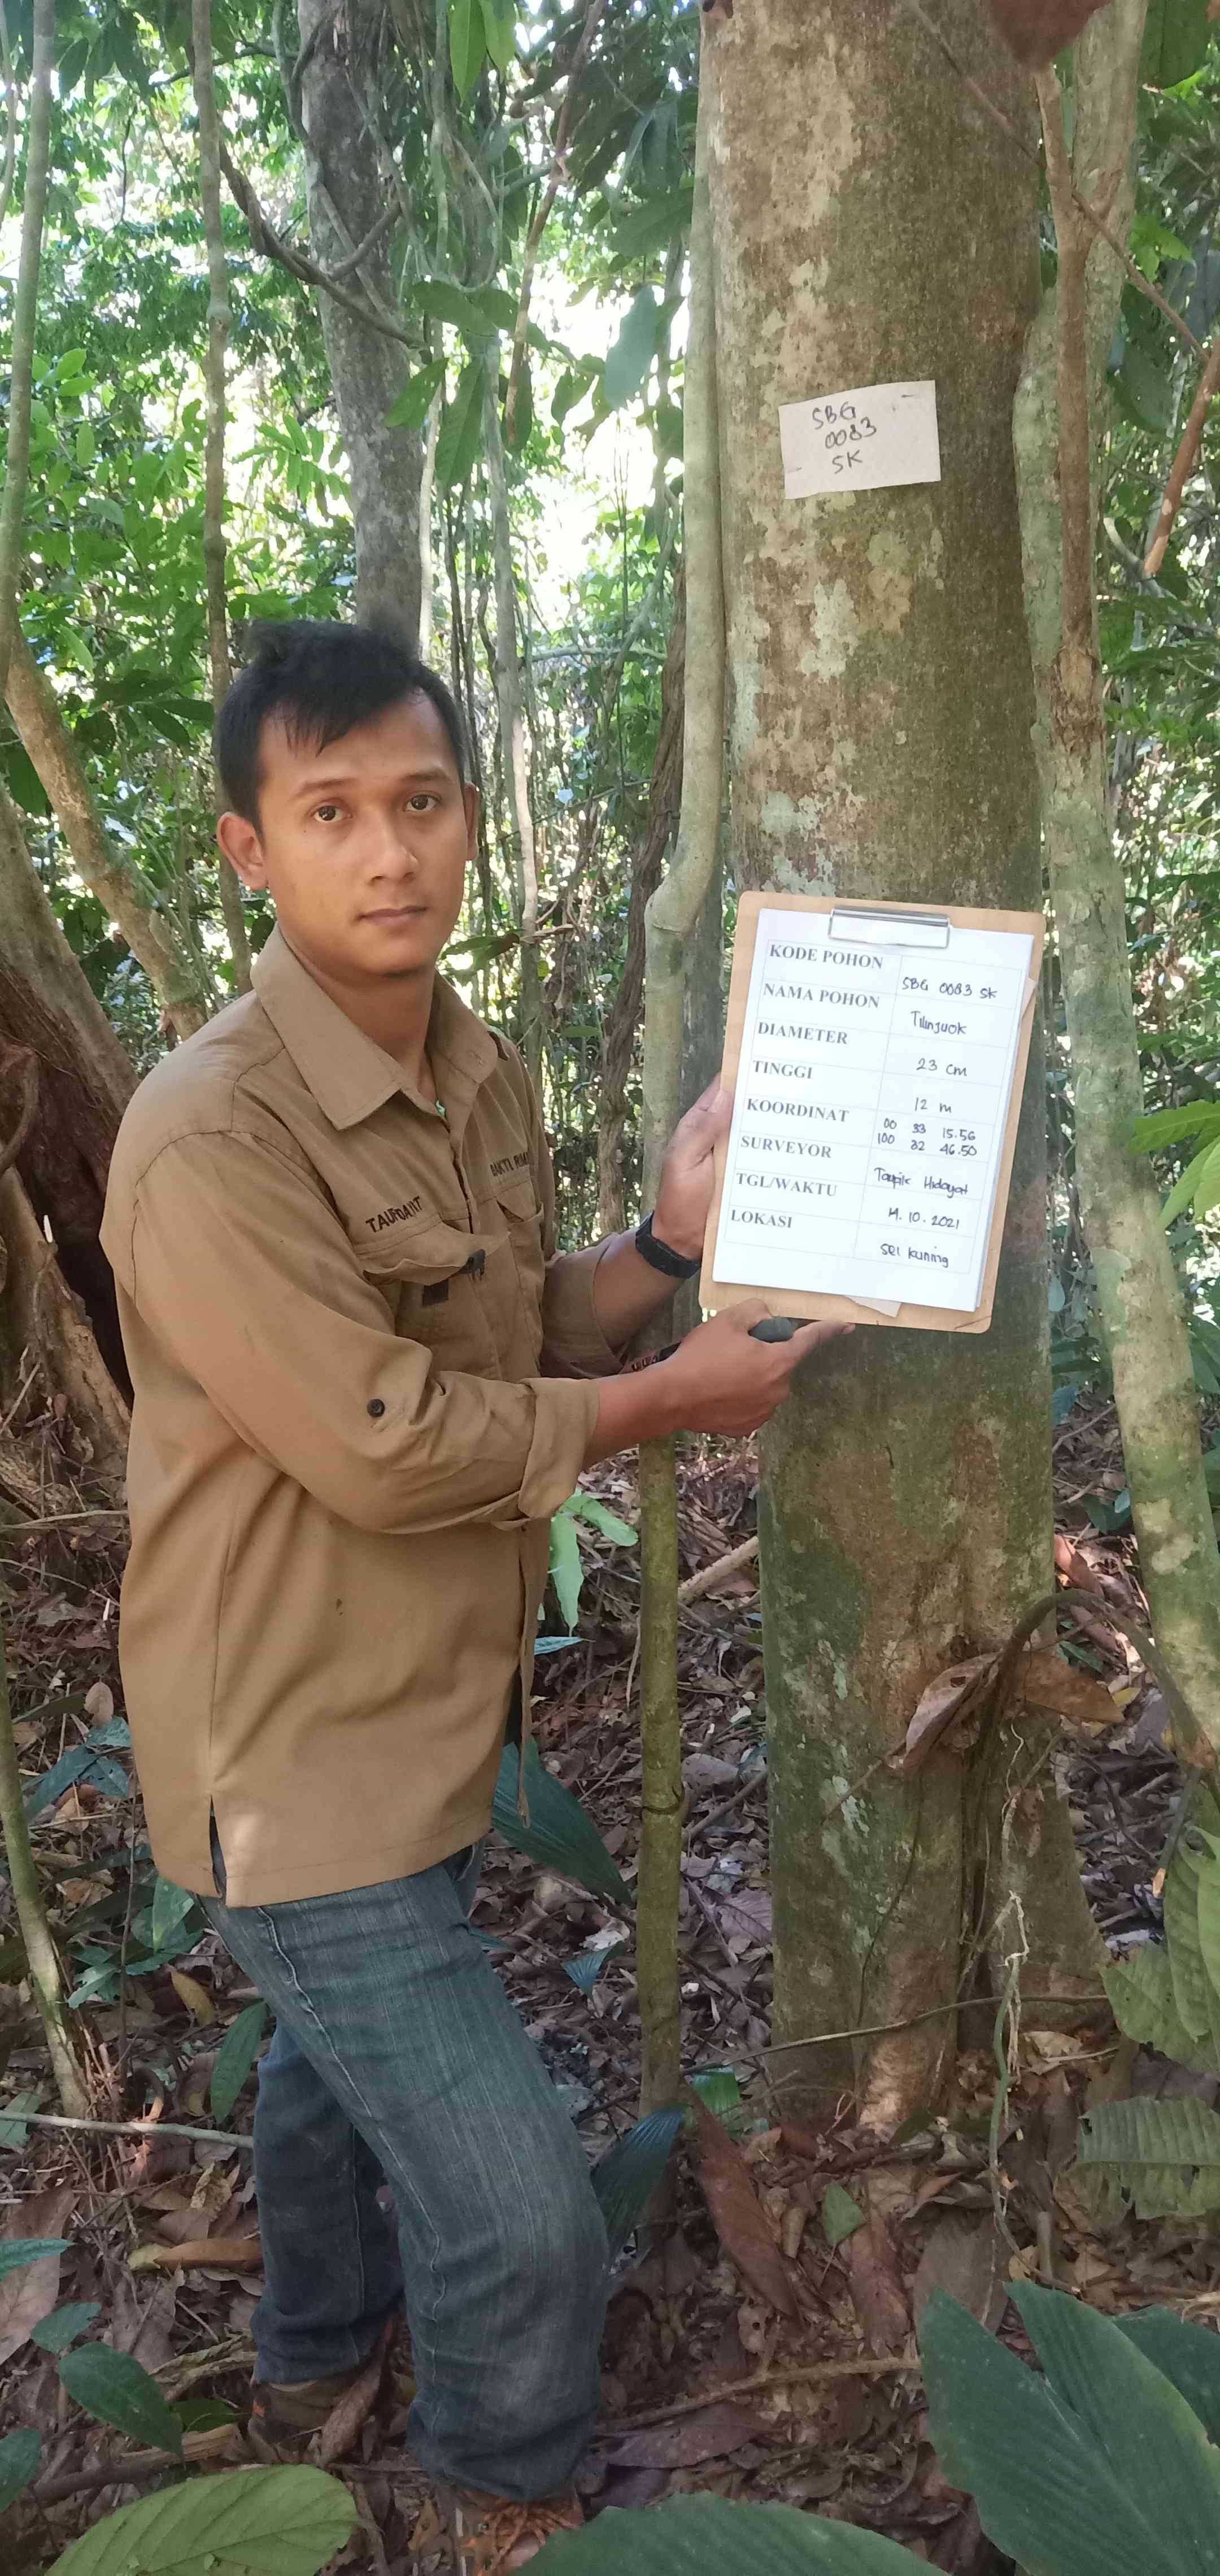 SBG
0083
SK
KODE POHON SBG 0083 SK
NAMA POHON Tilinjuok
DIAMETER 23 cm
TINGGI 12 m
KOORDINAT 00 33 15.56
100 32 46.50
SURVEYOR Taupik Hidayat
TGL/WAKTU 14.10.2021
LOKASI sei kuning